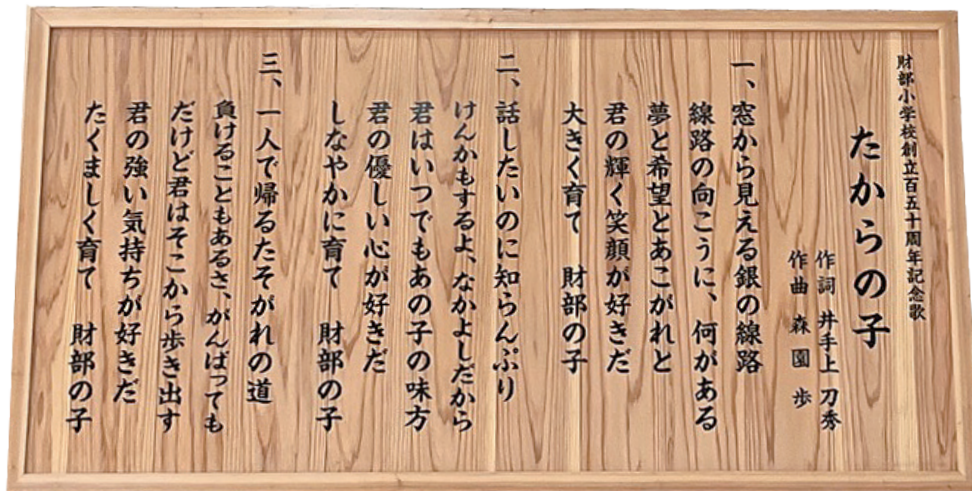 財部小学校創立百五十周年記念歌
たからの子
作詞 井手上 刀秀
作曲 森 園 歩
一、窓から見える銀の線路
線路の向こうに、何がある
夢と希望とあこがれと
君の輝く笑顔が好きだ
大きく育て 財部の子
二、話したいのに知らんぷり
けんかもするよ、なかよしだから
君はいつでもあの子の味方
君の優しい心が好きだ
しなやかに育て 財部の子
三、一人で帰るたそがれの道
負けることもあるさ、がんばっても
だけど君はそこから歩き出す
君の強い気持ちが好きだ
たくましく育て 財部の子